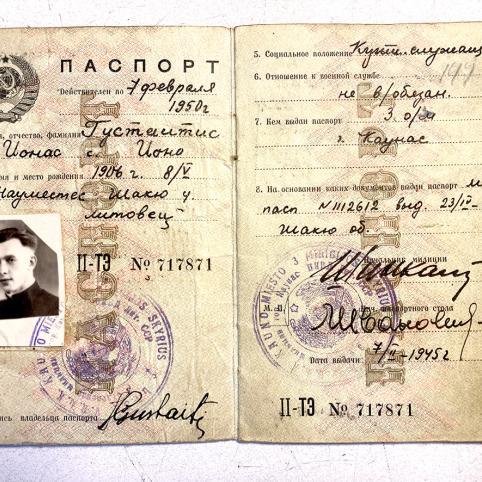 ПАСПОРТ
Действителен по 7 февраля
1950 г
, отчество, фамилия Густайтис
Ионас с. Ионо
и место рождения 1906 г. 8/V
Науместес Шакю у
литовец
II-ТЭ № 717871
владельца паспорта
5. Социальное положение служащ
6. Отношение к военной службе
не в/обязан.
7. Кем выдан паспорт 3 о/м
г. Каунас
8. На основании каких документов выдан паспорт
пасп N III2612 выд. 23/IV-
Шакю об.
Начальник милиции
М. П. паспортного стола
Дата выдачи: 7/II-1945г
II-ТЭ № 717871